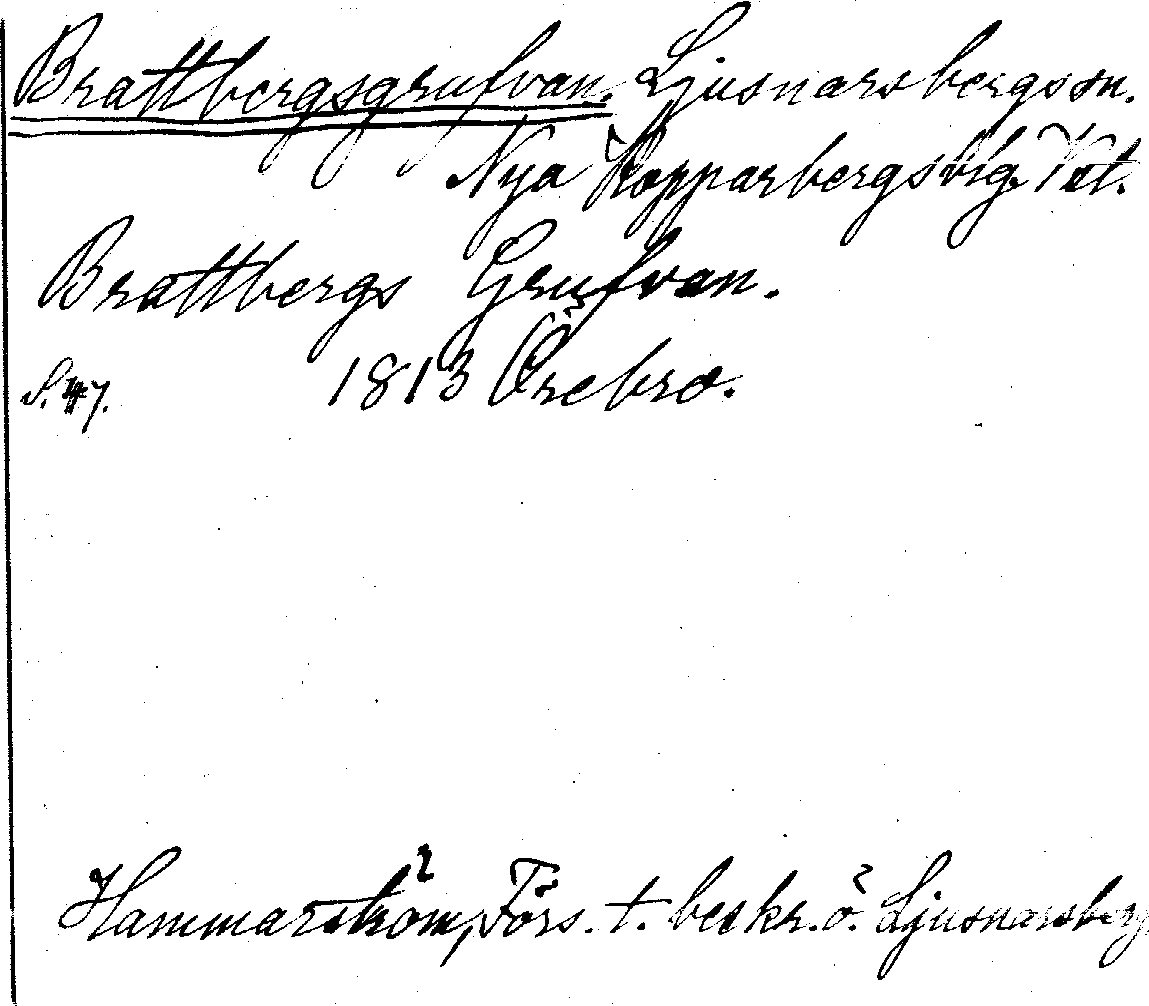 Brattbergsgrufvan. Ljusnarsbergs sn.
Nya Kopparbergs blg. Vstl.
Brattbergs Grufvan.
S. 47. 1813 Örebro.
Hammarström, Förs. t. beskr. ö. Ljusnarsberg